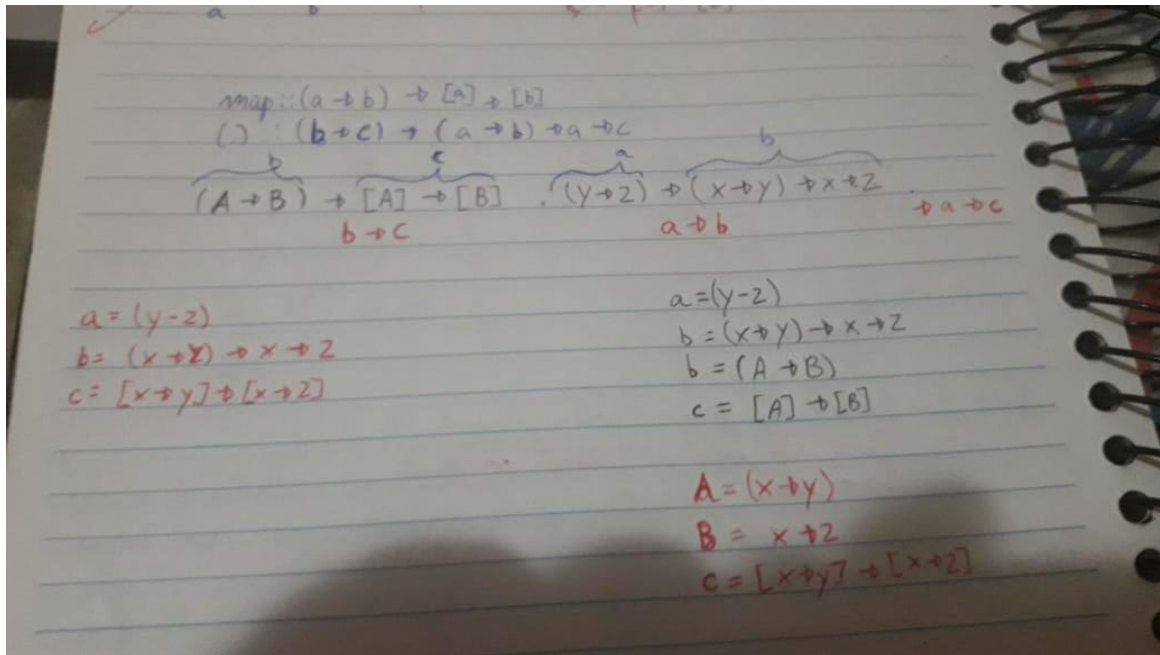 a b
map :: (a → b) → [a] → [b]
(.) : (b → c) → (a → b) → a → c
b c a b
(A → B) → [A] → [B] . (y → z) → (x → y) → x → z .
b → c a → b → a → c
a = (y - z)
b = (x → y) → x → z
c = [x → y] → [x → z]
a = (y - z)
b = (x → y) → x → z
b = (A → B)
c = [A] → [B]
A = (x → y)
B = x → z
c = [x → y] → [x → z]